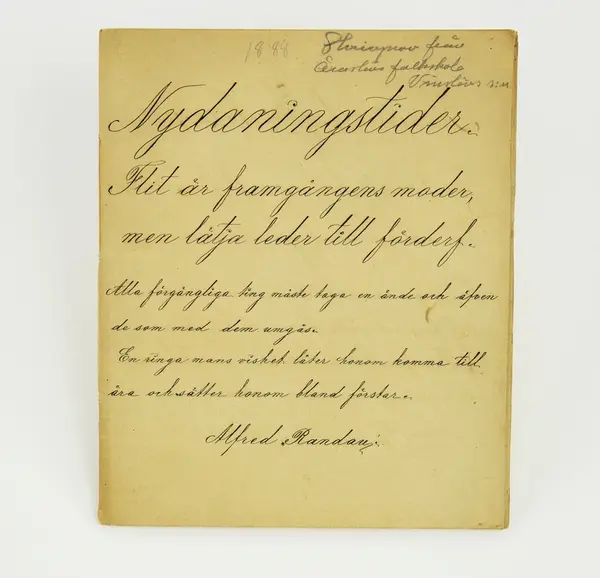 1888
Skrivprov från
folkskola
Vinslövs s:n
Nydaningstider.
Flit är framgångens moder,
men lätja leder till förderf.
Alla förgängliga ting måste taga en ände och äfven
de som med dem umgås.
En ringa mans vishet låter honom komma till
ära och sätter honom bland förstar.
Alfred Randau.